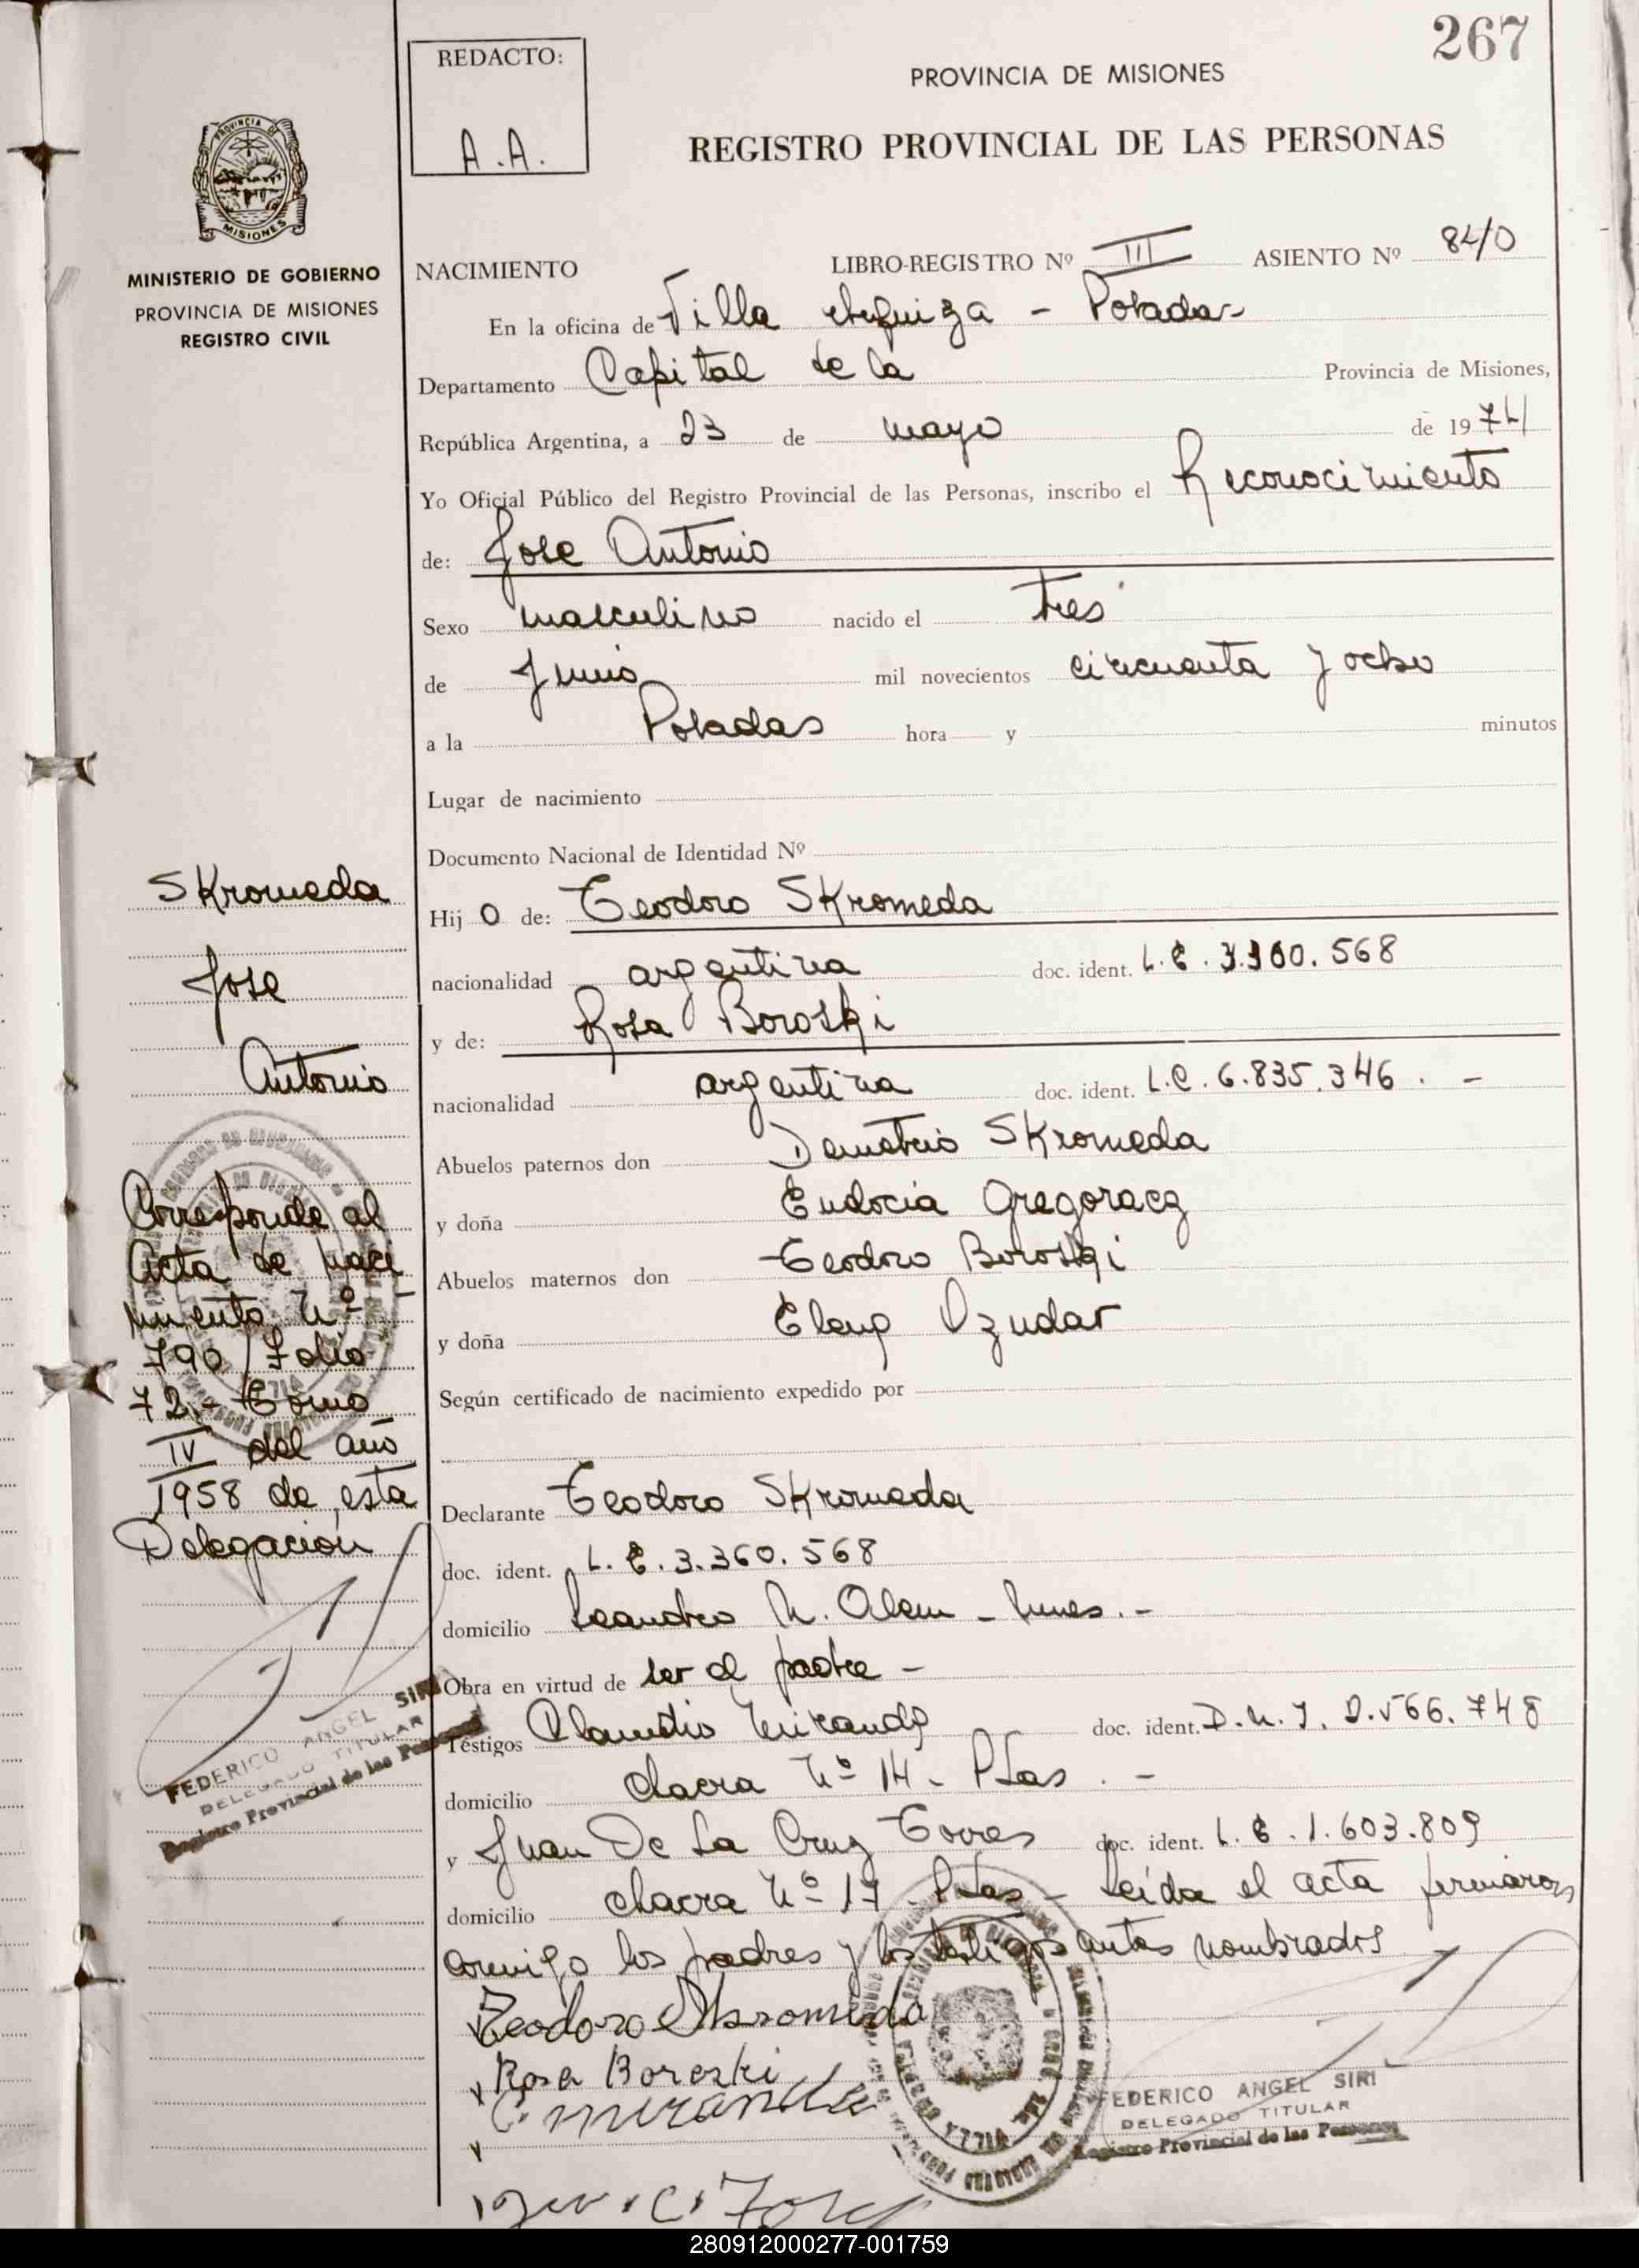 267
REDACTO:
A.A.
PROVINCIA DE MISIONES
REGISTRO PROVINCIAL DE LAS PERSONAS
PROVINCIA DE
MISIONES
MINISTERIO DE GOBIERNO
PROVINCIA DE MISIONES
REGISTRO CIVIL
NACIMIENTO LIBRO-REGISTRO Nº III ASIENTO Nº 84/0
En la oficina de Villa Urquiza - Posadas
Departamento Capital de la Provincia de Misiones,
República Argentina, a 23 de mayo de 1974
Yo Oficial Público del Registro Provincial de las Personas, inscribo el Reconocimiento
de: Jose Antonio
Sexo masculino nacido el tres
de Junio mil novecientos cincuenta y ocho
a la Posadas hora y minutos
Lugar de nacimiento
Documento Nacional de Identidad Nº
Hij o de: Teodoro Skromeda
nacionalidad argentina doc. ident. L.E. 3.360.568
y de: Rosa Boroski
nacionalidad argentina doc. ident. L.C. 6.835.346. -
Abuelos paternos don Demetrio Skromeda
y doña Eudocia Gregoracz
Abuelos maternos don Teodoro Boroski
y doña Elena Ozudar
Según certificado de nacimiento expedido por
Declarante Teodoro Skromeda
doc. ident. L.E. 3.360.568
domicilio Leandro N. Alem - Mnes. -
Obra en virtud de ser el padre -
Testigos Claudio Miranda doc. ident. D.N.I. 2.566.748
domicilio chacra Nº 14 - Pdas. -
y Juan De La Cruz Torres doc. ident. L.E. 1.603.809
domicilio chacra Nº 17 Pdas - Leída el acta firmaron
conmigo los padres y los testigos antes nombrados
Teodoro Skromeda
Rosa Boroski
C. Miranda
FEDERICO ANGEL SIRI
DELEGADO TITULAR
Registro Provincial de las Personas
Skromeda
Jose
Antonio
Corresponde al
Acta de naci
miento Nº
790 Folio
72.- Tomo
IV del año
1958 de esta
Delegación
FEDERICO ANGEL SIRI
DELEGADO TITULAR
Registro Provincial de las Personas
280912000277-001759